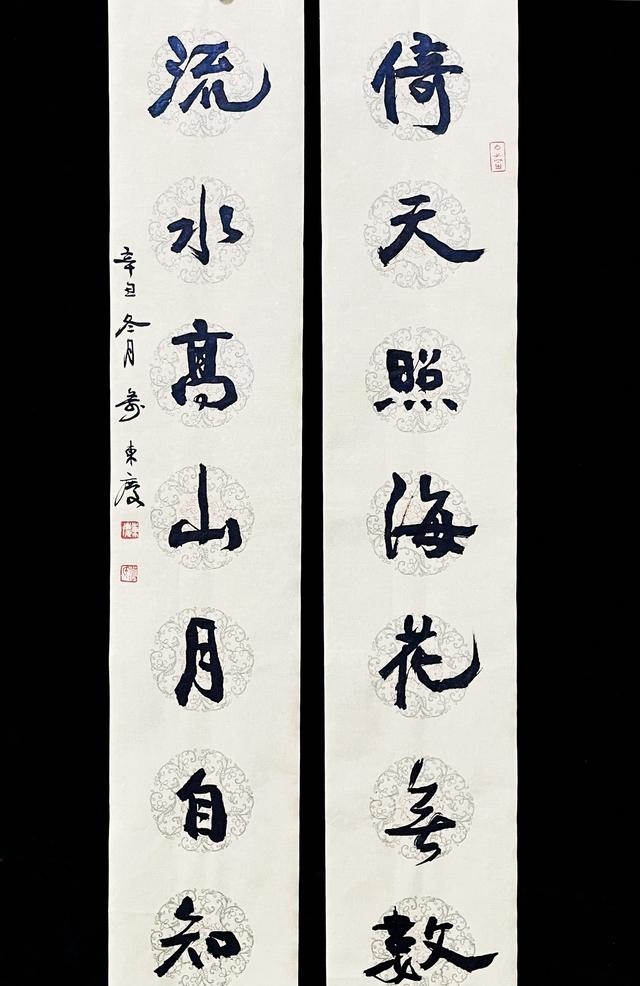 倚天照海花無數
流水高山月自知
辛丑冬月 東慶